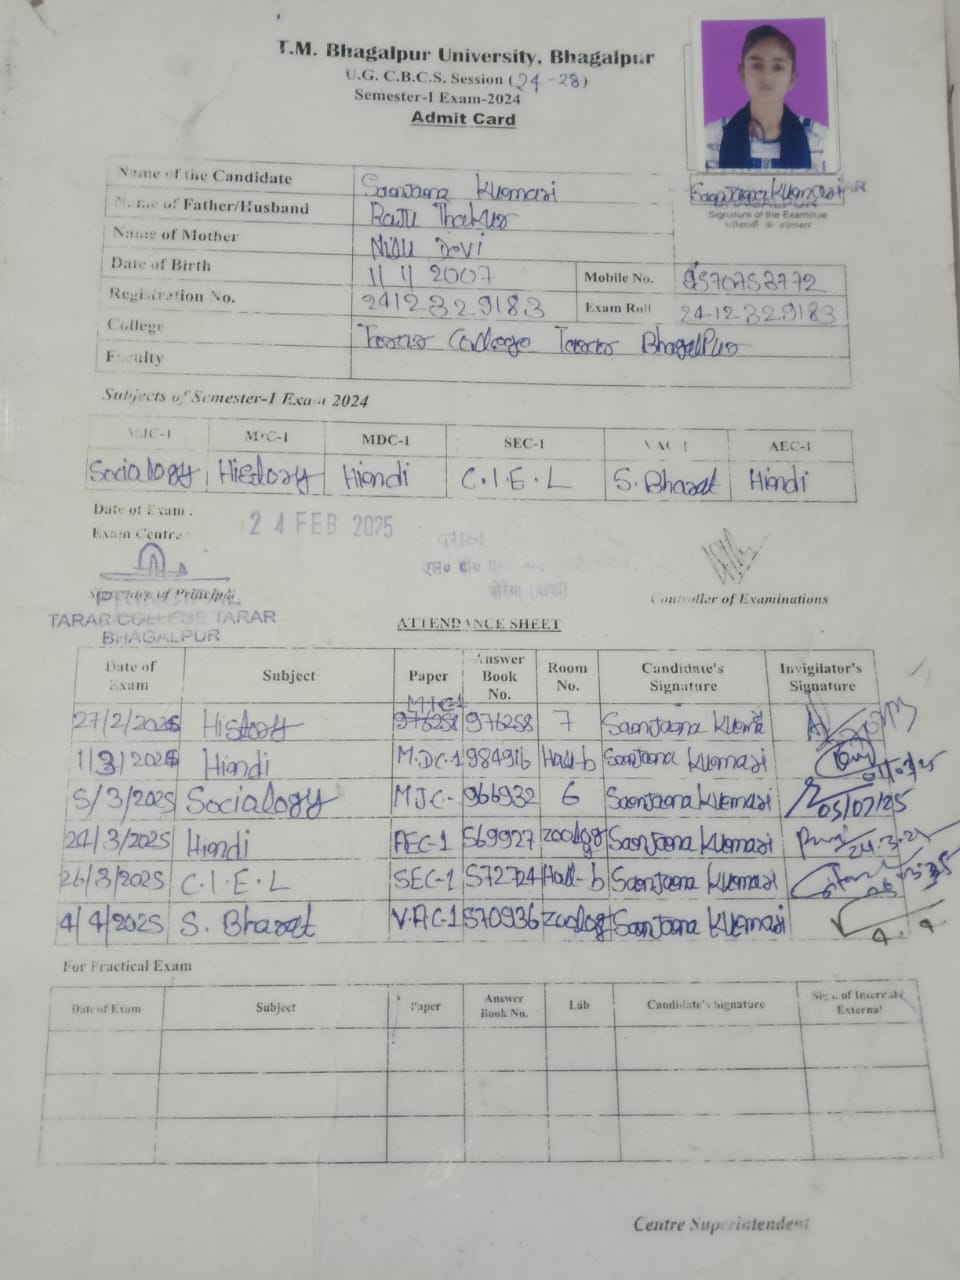 T.M. Bhagalpur University, Bhagalpur
U.G. C.B.C.S. Session (24-28)
Semester-I Exam-2024
Admit Card
Name of the Candidate Saanjana Kuemari
Saanjana Kumari
Signature of the Examinee
Name of Father/Husband Raju Thakur
Name of Mother Devi
Date of Birth 1/1/2007 Mobile No. 9570753772
Registration No. 2412329183 Exam Roll 24-12-329183
College Tarar College Tarar Bhagalpur
Faculty
Subjects of Semester-I Exam 2024
MJC-1 MIC-1 MDC-1 SEC-1 VAC-1 AEC-1
Socialogy History Hiondi C.I.E.L S. Bharat Hiondi
Date of Exam :
24 FEB 2025
Exam Centre :
Signature of Principal
Controller of Examinations
PRINCIPAL
TARAR COLLEGE TARAR
BHAGALPUR
ATTENDANCE SHEET
Date of Exam Subject Paper Answer Book No. Room No. Candidate's Signature Invigilator's Signature
27/2/2025 History MIC-1 976258 7 Saanjana
1/3/2025 Hiondi M.DC-1 984916 Hall-b Saanjana Kuemari
5/3/2025 Socialogy MJC- 966932 6 Saanjana Kuemari
24/3/2025 Hiondi AEC-1 569927 zoology Saanjana Kuemari 24.3.25
26/3/2025 C.I.E.L SEC-1 572724 Hall-b Saanjana Kuemari
4/4/2025 S. Bharat V.AC-1 570936 zoology Saanjana Kuemari
For Practical Exam
Date of Exam Subject Paper Answer Book No. Lab Candidate's Signature Sign. of Internal/ External
Centre Superintendent